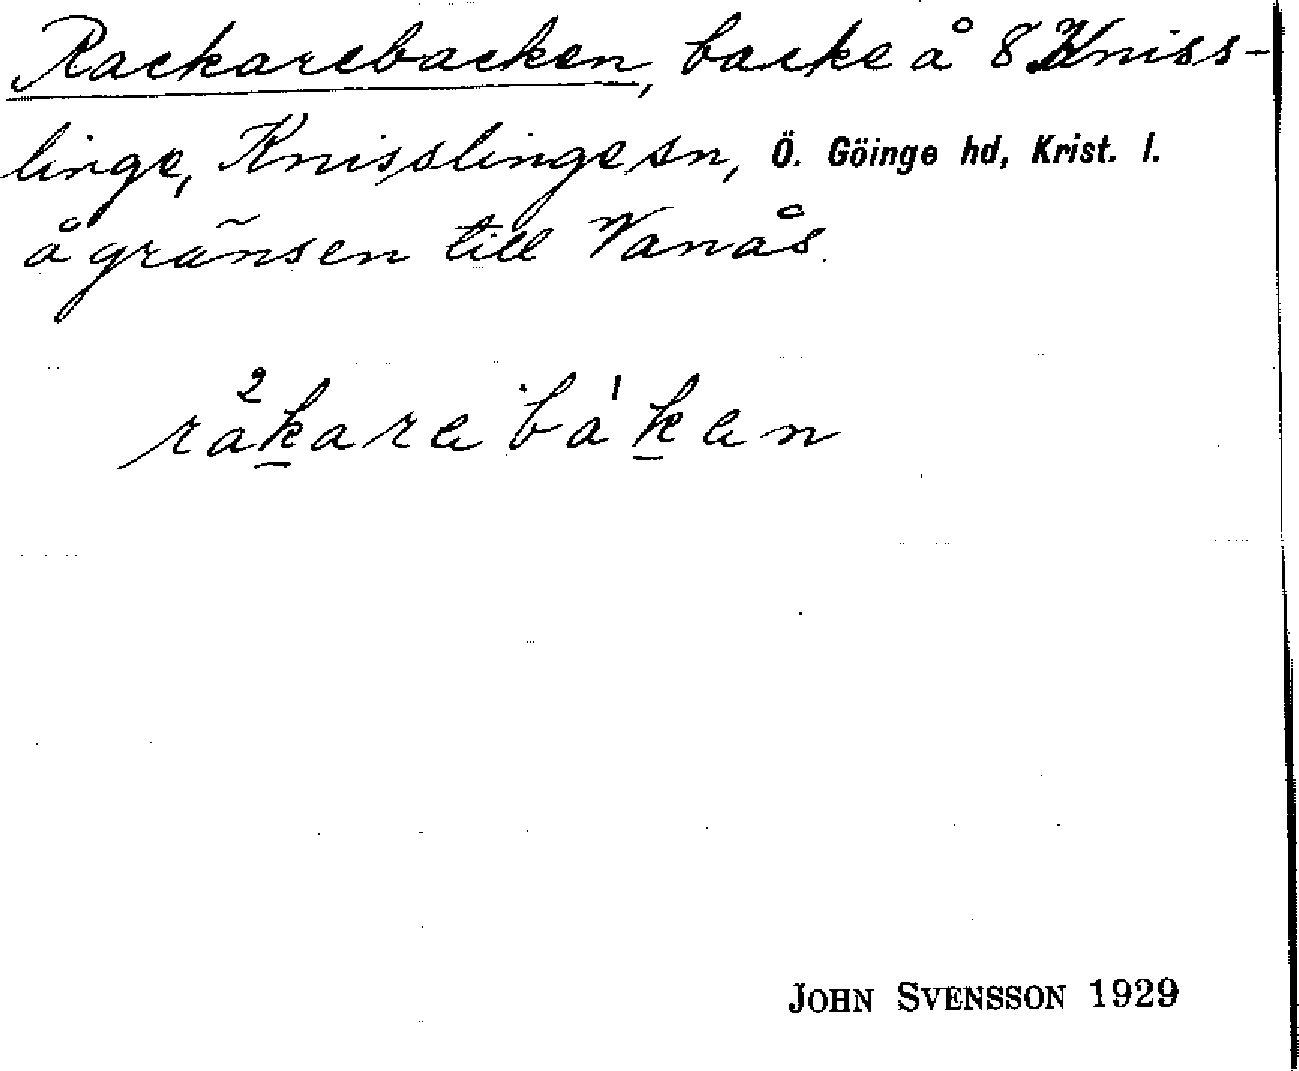 Rackarebacken, backe å 8 Kniss-
linge, Knisslinge sn, Ö. Göinge hd, Krist. l.
å gränsen till Vanås.
råkarebåken
JOHN SVENSSON 1929